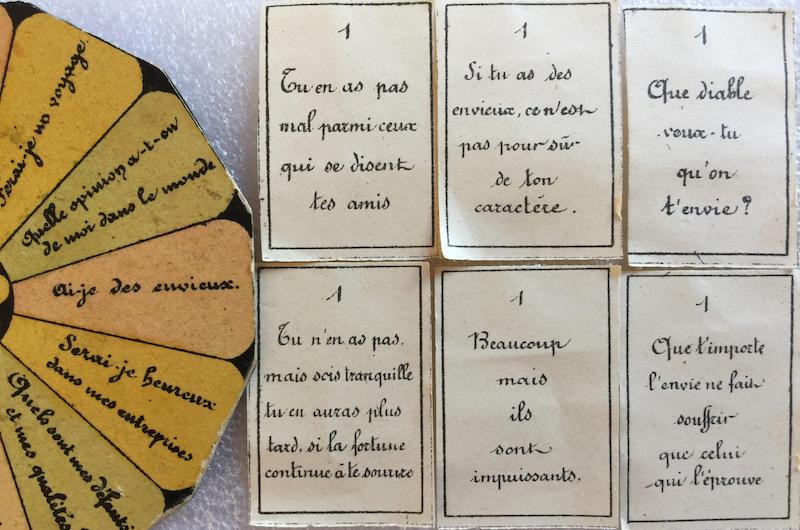 Serai-je no voyage.
Quelle opinion a-t-on
de moi dans le monde
Ai-je des envieux.
Serai-je heureux
dans mes entreprises
Quels sont mes
et mes qualités
1
Tu en as pas
mal parmi ceux
qui se disent
tes amis
1
Si tu as des
envieux, ce n'est
pas pour sûr
de ton
caractère.
1
Que diable
veux-tu
qu'on
t'envie?
1
Tu n'en as pas,
mais sois tranquille
tu en auras plus
tard, si la fortune
continue à te sourire
1
Beaucoup
mais
ils
sont
impuissants.
1
Que t'importe
l'envie ne fait
souffrir
que celui
qui l'éprouve